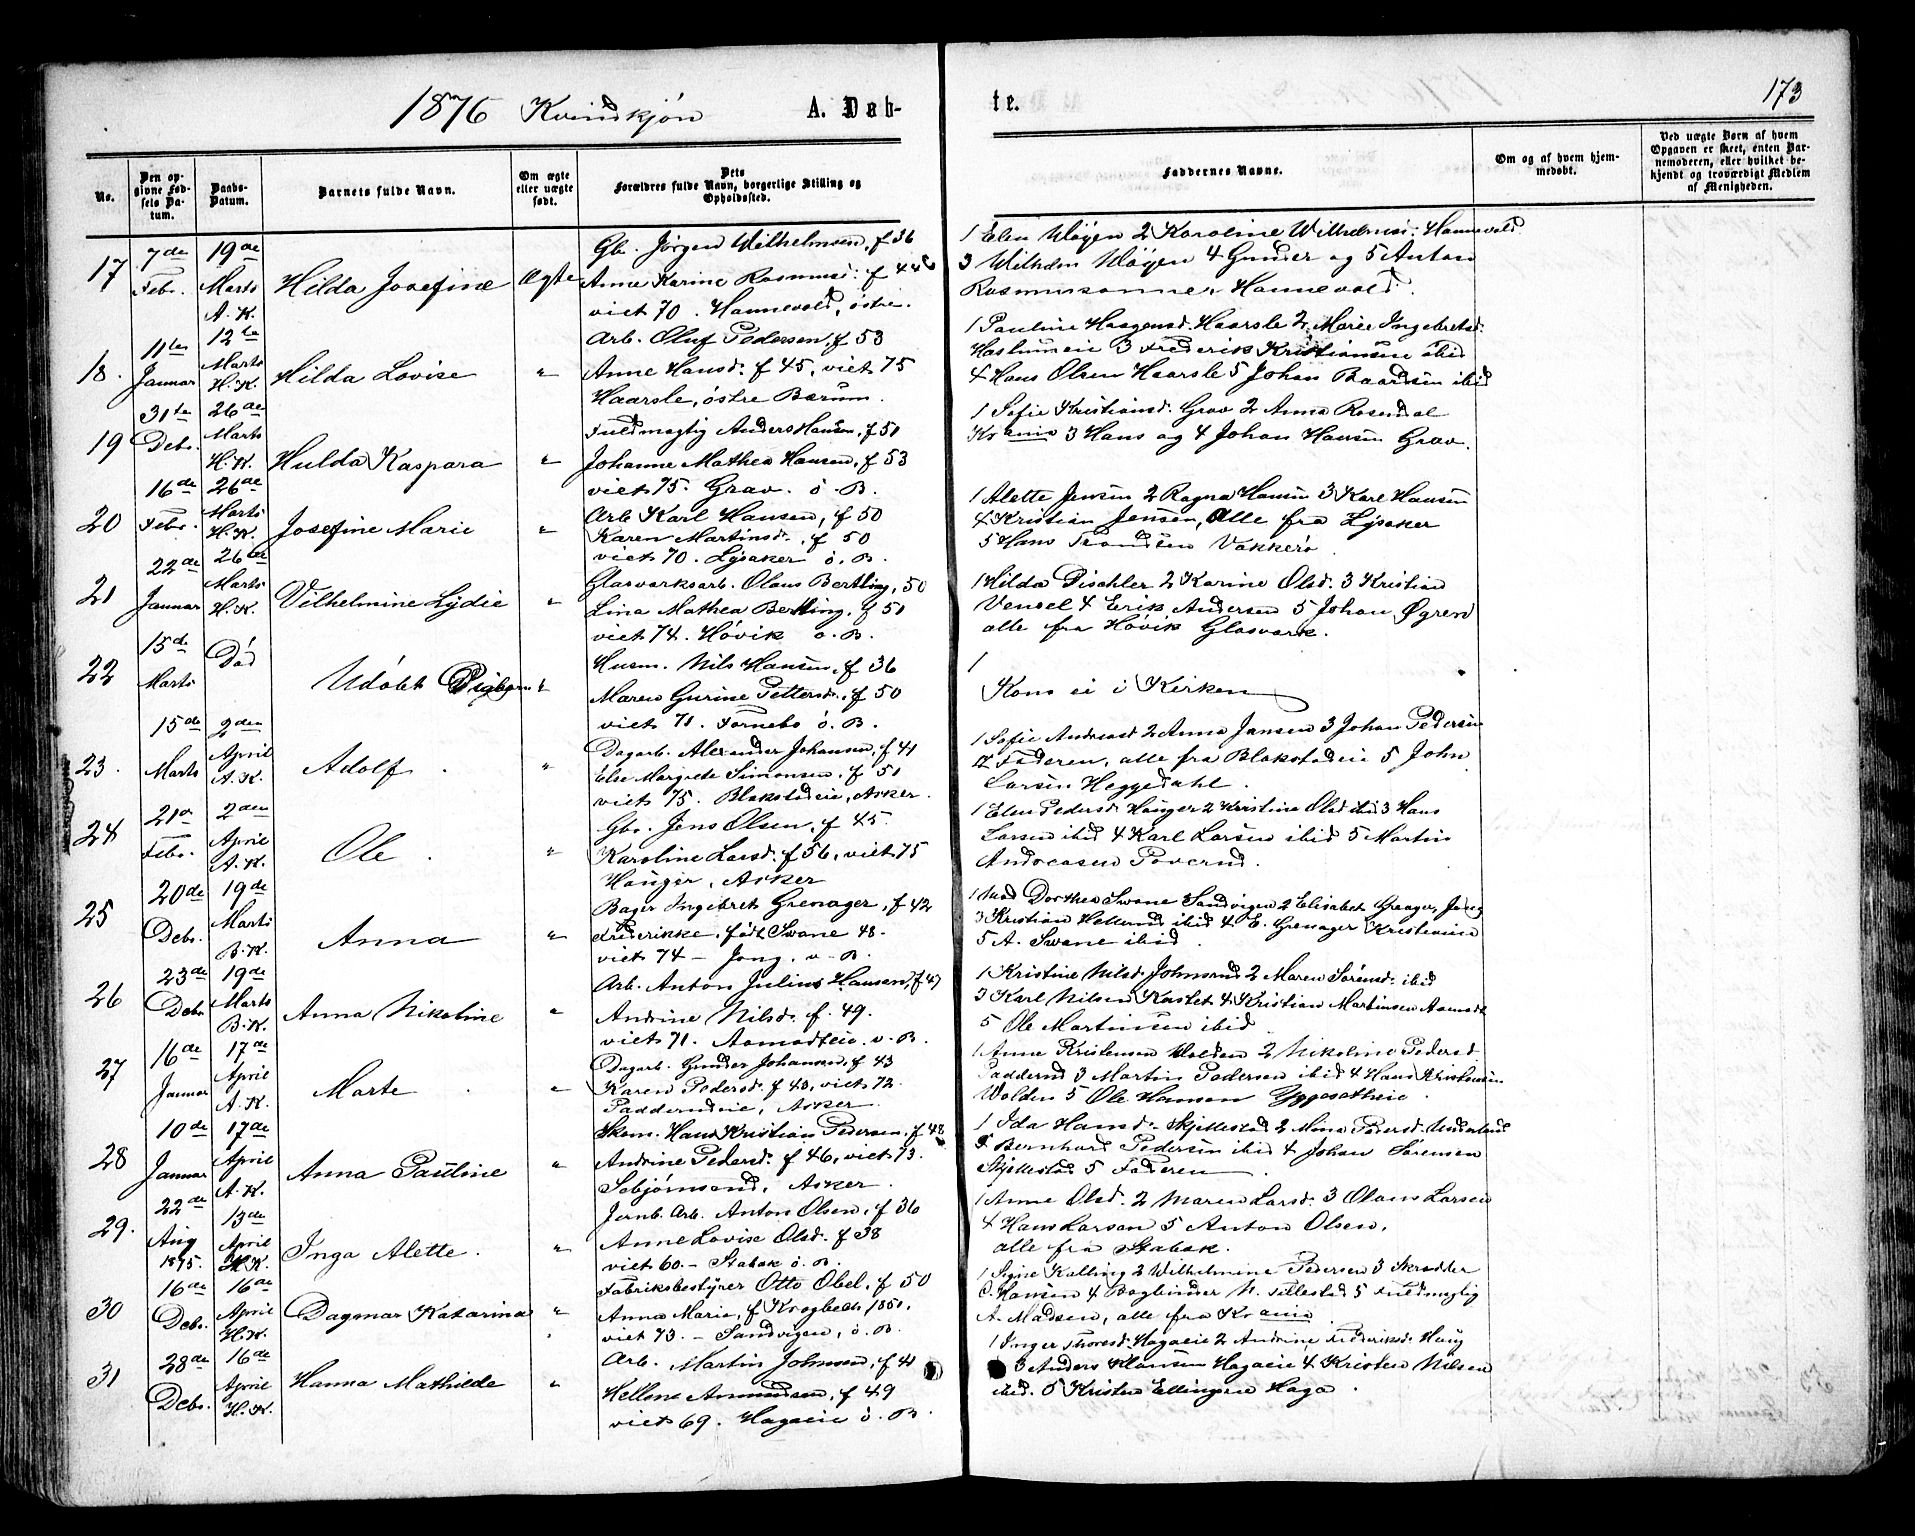 1876 Kvindkjøn A. Døb-
te. 173
No.
Den op-
givne Fød-
sels Da-
tum.
Daabs-
Datum.
Barnets fulde Navn.
Om ægte
eller uægte
født.
Dets
Forældres fulde Navn, borgerlige Stilling og
Opholdssted.
Faddernes Navne.
Om og af hvem hjem-
medøbt.
Ved uægte Børn af hvem
Opgaven er skeet, enten Bar-
nemoderen, eller hvilket be-
kjendt og troværdigt Medlem
af Menigheden.
17
7de
Febr.
19de
Marts
A. K.
Hilda Josefine
Ægte
Gb. Jørgen Wilhelmsen, f 36
Anne Karine Rasmusd: f 44
viet 70. Hannevold, østre.
1 Elen Wøyen 2 Karoline Wilhelmsd: Hannevold
3 Wilhelm Wøyen 4 Gunder og 5 Anton
Rasmussønner Hannevold.
18.
11te
Januar
12te
Marts
H. K.
Hilda Lovise
"
Arb. Oluf Pedersen, f 53
Anne Hansd. f 45, viet 75
Haarsle, østre Bærum.
1 Pauline Haagensd. Haarsle 2 Marie Ingebretsd:
Haslumeie 3 Frederik Kristiansen ibid
4 Hans Olsen Haarsle 5 Johan Baardsen ibid
19
31te
Debr.
26de
Marts
H. K.
Hulda Kaspara
"
Fuldmægtig Anders Hansen, f 51
Johanne Mathea Hansen, f 53
viet 75. Grav. ø. B.
1 Sofie Kristiansd. Grav 2 Anna Rosendal
Kr ania 3 Hans og 4 Johan Hansen Grav.
20
16de
Febr.
26de
Marts
H. K.
Josefine Marie
"
Arb. Karl Hansen, f 50
Karen Martinsd. , f 50
viet 70. Lysaker ø. B.
1 Alette Jensen 2 Ragna Hansen 3 Karl Hansen
4 Kristian Jensen, Alle fra Lysaker
5 Hans Trondsen Vækkerø.
21
22de
Januar
26de
Marts
H. K.
Vilhelmine Lydie
"
Glasværksarb. Olaus Bertling, 50
Lina Mathea Bertling, f 51
viet 74. Høvik ø. B.
1 Hilda Pischler 2 Karine Olsd. 3 Kristian
Vensel 4 Erik Andersen 5 Johan Øgren
alle fra Høvik Glasværk.
22
15de
Marts
Død
Udøbt Pigebarn
"
Husm. Nils Hansen, f 36
Maren Gurine Pettersd., f 50
viet 71. Fornebo ø. B.
1
Kons ei i Kirken
23.
15de
Marts
2den
April
A. K.
Adolf.
"
Dagarb. Alexander Johansen, f 41
Else Margrete Simonsen, f 51
viet 75. Blakstadeie, Asker.
1 Sofie Andreasd 2 Anna Jansen 3 Johan Pedersen
4 Faderen, alle fra Blakstadeie 5 John
Larsen Heggedahl.
24
21de
Febr.
2den
April
A. K.
Ole.
"
Gbr. Jens Olsen, f 45.
Karoline Larsd. f 56, viet 75
Hauger, Asker
1 Elen Pedersd. Hauger 2 Kristine Olsd ibid 3 Hans
Larsen ibid 4 Karl Larsen ibid 5 Martin
Andreasen Poverud.
25
20de
Debr.
19de
Marts
B. K.
Anna
"
Bager Ingebret Grenager, f 42
Frederikke, født Svane 48.
viet 74 - Jong. v. B.
1 Mad Dorthea Svane Sandvigen 2 Elisabet Grenager, Jong
3 Kristian Hellund ibid 4 E. Grenager Kristiania
5 A. Svane ibid.
26
23de
Debr
19de
Marts
B. K.
Anna Nikoline
"
Arb. Anton Julius Hansen, f 47
Andrine Nilsd. f. 49.
viet 71. Aamodteie v. B.
1 Kristine Nilsd. Johnsrud 2 Maren Sørensd. ibid
3 Karl Nilsen Kastet 4 Kristian Martinsen Aamodt
5 Ole Martinsen ibid.
27
16de
Januar
17de
April
A. K.
Marte.
"
Dagarb. Gunder Johansen, f 43
Karen Pedersd. f 43, viet 72.
Paddernd eie, Asker.
1 Anne Kristensen Wolden 2 Nikoline Pedersd.
Paddernd 3 Martin Pedersen ibid 4 Hans Kristensen
Wolden 5 Ole Hansen Yggesetheie.
28
10de
Januar
17de
April
A. K.
Anna Pauline
"
Skom. Hans Kristian Pedersen, f 48
Andrine Pedersd. f 46, viet 73.
Sebjørnsrud, Asker.
1 Ida Hansd. Skjellestad 2 Mina Pedersd. Underlund
3 Bernhard Pedersen ibid 4 Johan Sørensen
Skjellestad 5 Faderen
29.
22de
Aug
1875.
13de
April
H. K.
Inga Alette.
"
Jernb. Arb. Anton Olsen, f 36
Anne Lovise Olsd. f 38
viet 60. - Stabæk ø. B.
1 Anne Olsd. 2 Maren Larsd. 3 Olaus Larsen
4 Hans Larsen 5 Anton Olsen,
alle fra Stabæk.
30
16de
Debr.
16de
April
H. K.
Dagmar Katarina
"
Fabriksbestyrer Otto Obel, f 50
Anna Marie, f Krogbech 1851.
viet 73. - Sandvigen, ø. B.
1 Signe Kalling 2 Wilhelmine Pedersen 3 Skrædder
O. Hansen 4 Bogbinder N. Tillestad 5 Fuldmægtig
A. Madsen, alle fra Kr ania.
31
28de
Debr.
16de
April
H. K.
Hanna Mathilde
"
Arb. Martin Johnsen, f 41
Hellene Amundsen, f 49
viet 69. Hagaeie ø. B.
1 Inger Thoresd. Hagaeie 2 Andrine Frederiksd. Haug
3 Anders Klausen Hagaeie 4 Kristen Nilsen
ibid. 5 Kristen Ellingsen Haga.